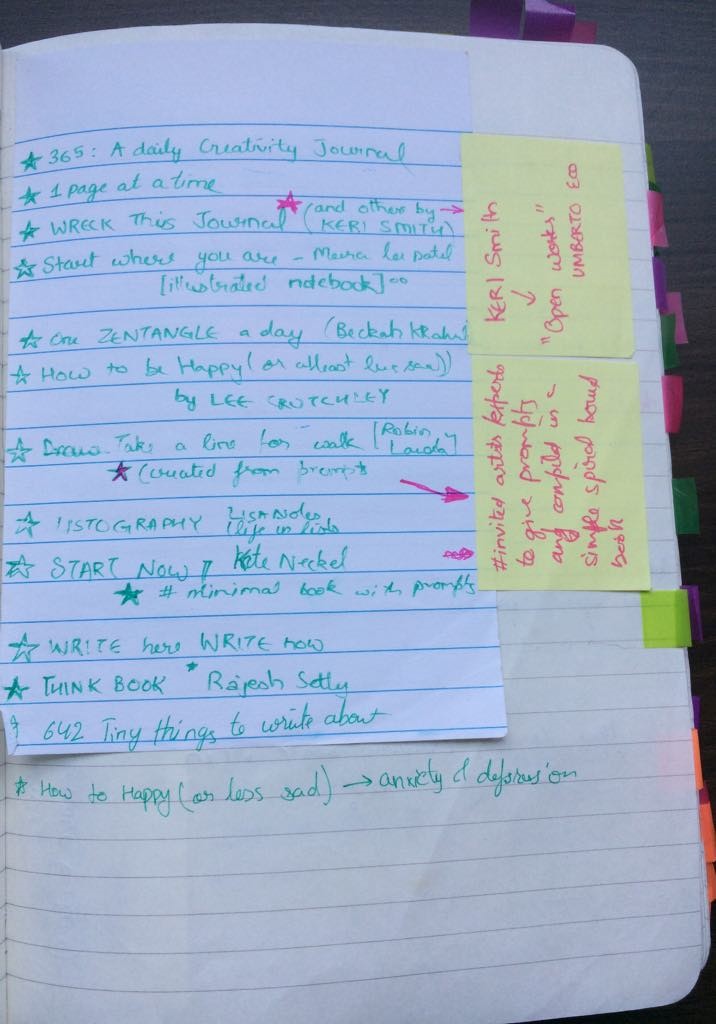 365: A daily Creativity Journal
1 page at a time
WRECK This Journal (and others by
KERI SMITH)
Start where you are - Meera lee patel
[illustrated notebook]
One ZENTANGLE a day (Beckah Krahu
How to be Happy (or atleast less sad))
by LEE CRUTCHLEY
Draw. Take a line for walk [Robin
Landa]
(created from prompts
LISTOGRAPHY LISA Nola
life in lists
START NOW Kate Neckel
# minimal book with prompts
WRITE here WRITE now
THINK BOOK * Rajesh Setty
642 Tiny things to write about
* How to Happy (or less sad) → anxiety &
KERI Smith
↓
"Open works"
UMBERTO ECO
#invited artists experts
to give prompts
and compiled in a
simple spiral bound
book